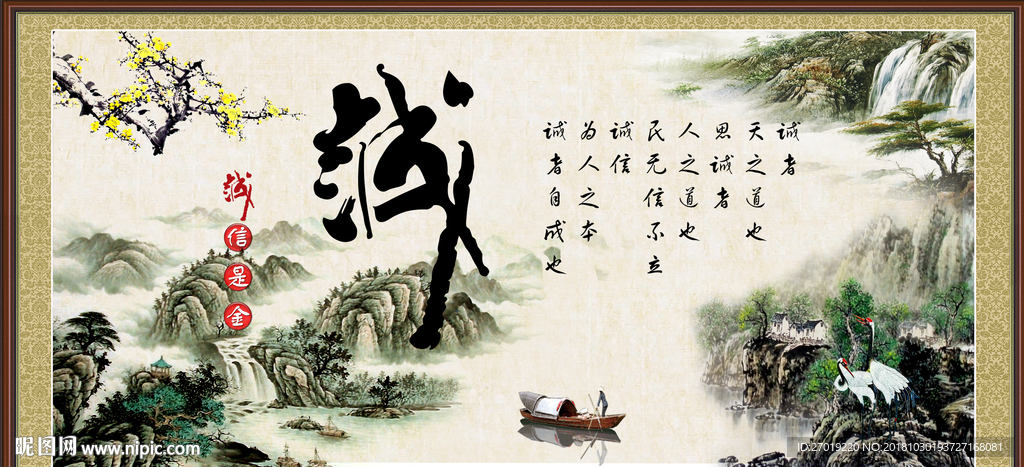 诚
诚者
天之道也
思诚者
人之道也
民无信不立
诚信
为人之本
诚者自成也
诚信是金
昵图网 www.nipic.com
ID:27019220 NO:20181030193727168081